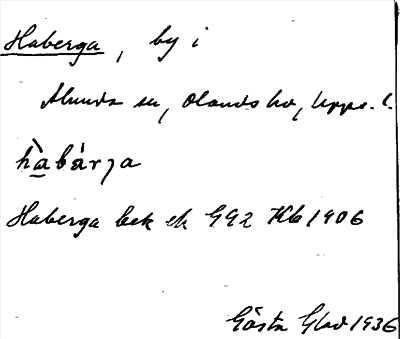 Haberga, by i
Alunda sn, Olands hd, Upps. l.
hàbárja
Haberga bek ek G92 Kb 1906
Gösta Glad 1936